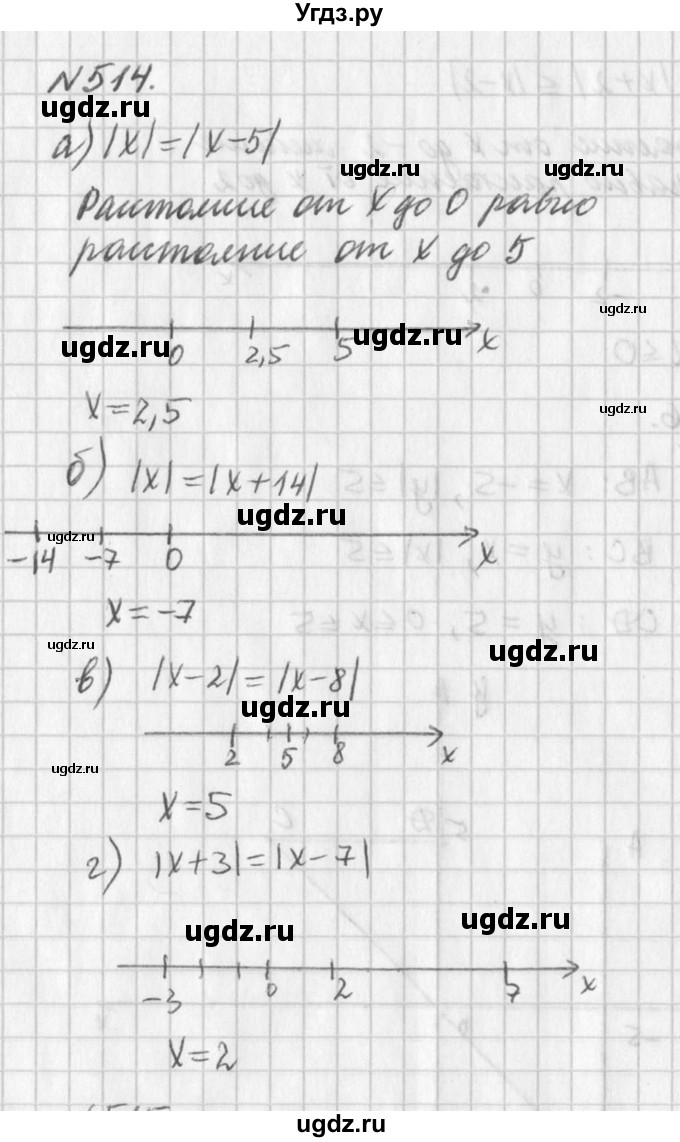 Угдз.ру
N514.
ugdz.ru
а) |x| = |x-5|
ugdz.ru ugdz.ru
Расстояние от X до 0 равно
расстояние от x до 5
ugdz.ru
ugdz.ru ugdz.ru
0 2,5 5 x
x = 2,5
ugdz.ru
б) |x| = |x+14|
ugdz.ru
ugdz.ru
-14 -7 0 x
x = -7
ugdz.ru
ugdz.ru
в) |x-2| = |x-8|
ugdz.ru
2 5 8 x
ugdz.ru
x = 5
г) |x+3| = |x-7|
ugdz.ru
ugdz.ru
-3 0 2 7 x
x = 2
ugdz.ru